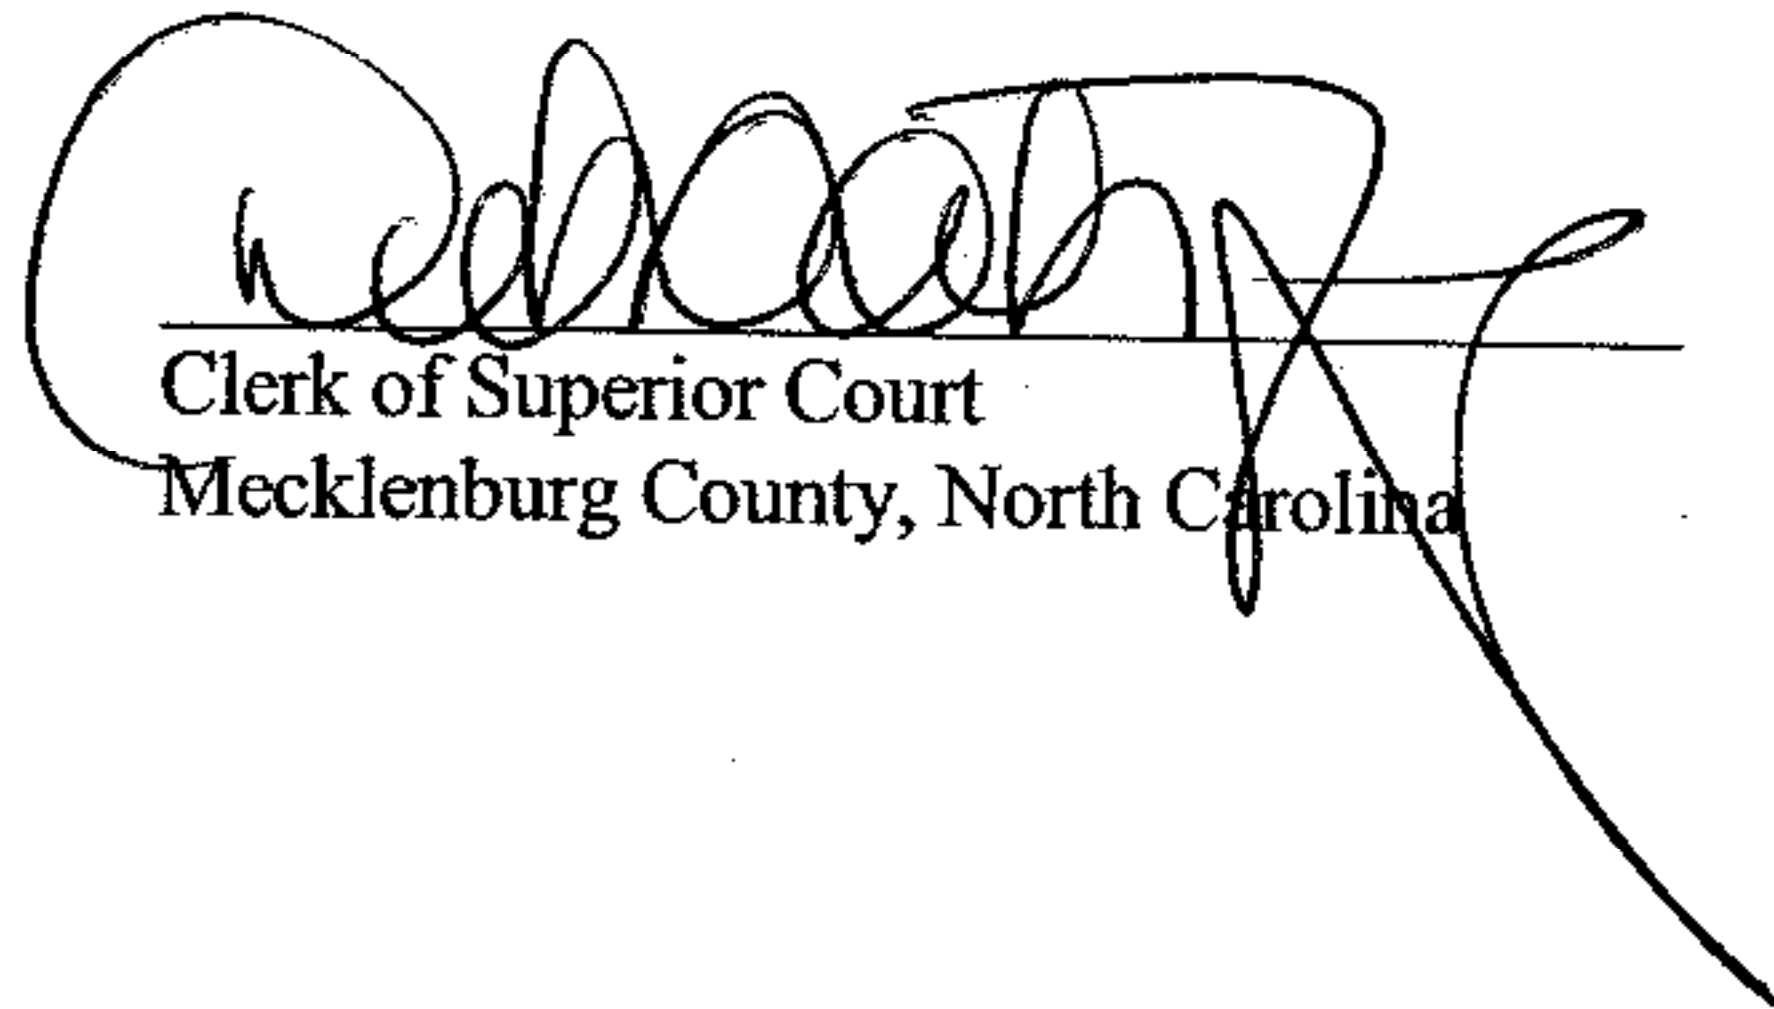 Clerk of Superior Court
Mecklenburg County, North Carolina